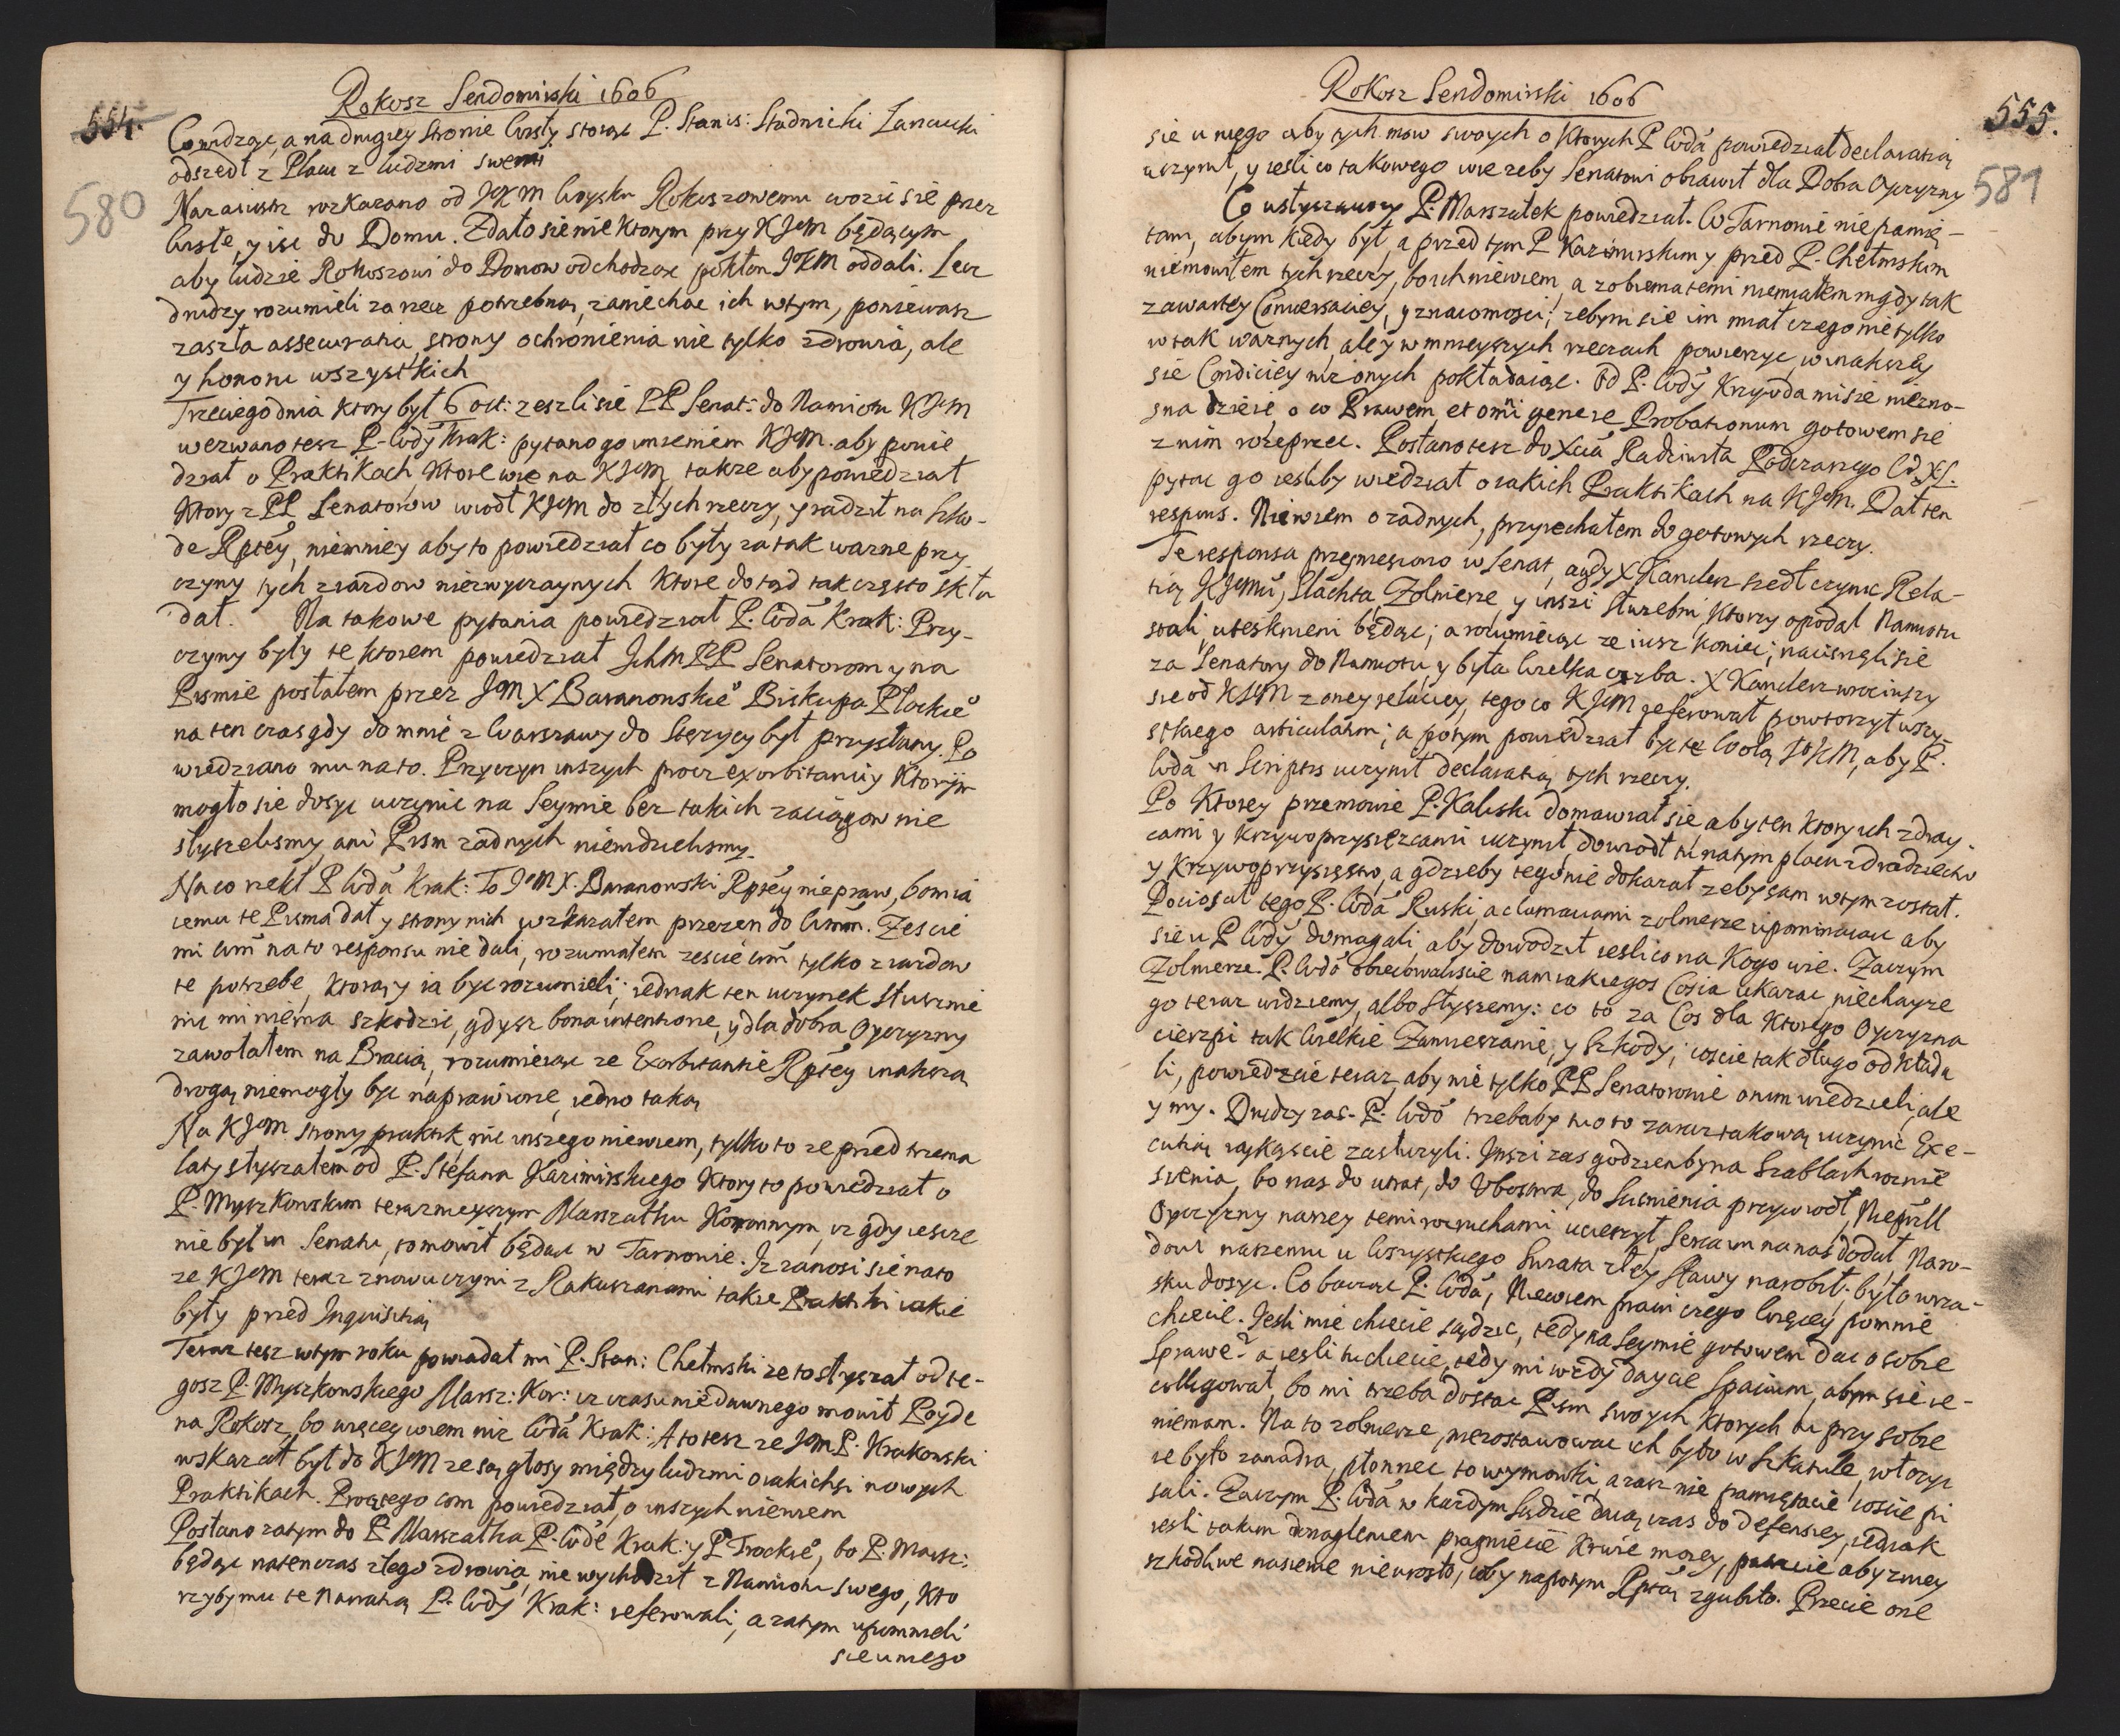 Rokosz Sendomirski 1606
554.
580
Co widząc, a na drugiey stronie Wisły stoiąc P. Stanis: Stadnicki Lancucki
odszedł z Placu z ludzmi swemi
Nazaiustrz rozkazano od JKM Woysku Rokoszowemu wozić się przez
Wisłę, y isc do Domu. Zdało sie niektorym przy KJeM będącym
aby ludzie Rokoszowi do Domow odchodząc pokłon JKM oddali. Lecz
drudzy rozumieli za rzecz potrzebną, zaniechac ich wtym, poniewasz
zaszła assecuratia strony ochronienia nie tylko zdrowia, ale
y honoru wszystkich
Trzeciego dnia ktory był 6 oct: zeszli sie PP Senat: do Namiotu KJeM
wezwano tesz P. Wdy Krak: pytano go imieniem KJeM. aby powie
dział o Praktikach ktore wie na KJeM, takze aby powiedział
Ktory z PP Senatorow wiodł KJeM do złych rzeczy, y radził na szko-
de Rptey, niemniey aby to powiedział co były za tak wazne przy
czyny tych ziazdow niezwyczaynych ktore do tąd tak często skła
dał. Na takowe pytania powiedział P. Wda Krak: Przy-
czyny były te ktorem powiedział IchM PP Senatorom y na
Pismie posłałem przez JM X Baranowskie° Biskupa Plockie°
na ten czas gdy do mnie z Warszawy do Stęzycy był przysłany. Po
wiedziano mu na to. Przyczyn inszych procz exorbitantiy ktorym
mogło sie dosyc uczynic na Seymie bez takich zaciągow nie
słyszelismy ani Pism zadnych niewidzielismy.
Na co rzekł P Wda Krak: To JeM X. Baranowski Rptey niepraw, bom ia
iemu te Pisma dał y strony nich wzkazałem przezen do Wmm. Zescie
mi Wm na to responsu nie dali, rozumiałem zescie Wm tylko ziazdow
te potrzebe, ktorą y ia byc rozumieli; iednak ten uczynek słusznie
nic mi niema szkodzic, gdysz bona intentione, y dla dobra Oyczyzny
zawołałem na Bracią, rozumieiąc ze Exorbitantie Rptey inakszą
drogą niemogły byc naprawione iedno taką
Na KJeM strony praktik nic inszego niewiem, tylko to ze przed trzema
laty słyszałem od P. Stefana Kazimirskiego ktory to powiedział o
P. Myszkowskim teraznieyszym Marszałku Koronnym, iz gdy iescze
nie był in Senatu, to mowił będąc w Tarnowie. Iz zanosi sie na to
ze KJeM teraz znowu czyni z Rakuszanami takie Praktiki iakie
były przed Inquisitią
Teraz tesz wtym roku powiadał mi P. Stan: Chełmski ze to słyszał od te-
gosz P. Myszkowskiego Marsz: Kor: iz czasu niedawnego mowił Poyde
na Rokosz, bo więcey wiem niz Wda Krak: A to tesz ze JeM P. Krakowski
wskazał był do KJeM ze są głosy między ludzmi o iakichsi nowych
Praktikach. Procz tego com powiedział, o inszych niewiem
Posłano zatym do P. Marszałka P. Wde Krak: y P Trockie°, bo P. Marsz:
będąc natenczas złego zdrowia, nie wychodził z Namiotu swego, kto
rzyby mu te Narratią P. Wdy Krak: referowali, a zatym upomnieli
sie u niego
Rokosz Sendomirski 1606
555.
581
sie u niego aby tych mow swoych o ktorych P Wda powiedział declaratią
uczynił, y iesli co takowego wie zeby Senatowi obiawił dla Dobra Oyczyzny
Co usłyszawszy P. Marszałek powiedział. W Tarnowie nie pamię-
tam, abym kiedy był, a przed tym P Kazimirskim y przed P. Chełmskim
niemowiłem tych rzeczy, bo ich niewiem, a z obiema temi niemiałem nigdy tak
zawartey Conversaciey, y znaiomosci; zebym sie im miał czego nie tylko
w tak waznych, ale y w mnieyszych rzeczach powierzyc, w inakszey
sie Condiciey niz onych pokładaiąc. Od P. Wdy Krzywda mi sie niezno-
sna dzieie, o co Prawem et omni genere Probationum gotowem sie
z nim rozeprzec. Posłano tesz do Xcia Radziwiła Podczaszego W. X. L.
pytac go iesliby wiedział o iakich Praktikach na KJeM. Dał ten
respons. Niewiem o zadnych, przyiechałem do gotowych rzeczy.
Te responsa przeniesiono w Senat, a gdy X Kanclerz szedł czynic Rela-
tią KJeMu, Slachta, Zolnierze y inszi Słuzebni, ktorzy opodal Namiotu
stali, utesknieni będąc; a rozumieiąc ze iusz koniec; nacisnęli sie
za Senatory do Namiotu, y była Wielka cizba. X Kanclerz wrociwszy
sie od KJeM z oney relaciey, tego co KJeM referował powtorzył wszy-
stkiego articulatim; a potym powiedział byc te Wolą JKM, aby P.
Wda in Scriptis uczynił declaratią tych rzeczy.
Po ktorey przemowie P. Kaliski domawiał sie, aby ten ktory ich zdray-
cami y krzywoprzysięzcami uczynił, dowiodł tu na tym placu zdradziectw
y krzywoprzysięstw, a gdzieby tego nie dokazał zeby sam wtym został.
Pociosał tego P. Wda Ruski, acclamavami zolnierze upominaiąc aby
sie u P Wdy domagali, aby dowodził iesli co na kogo wie. Zaczym
Zolnierze. P. Wdo obiecowaliscie nam iakiegos Cosia ukazac, niechayze
go teraz widziemy, albo słyszemy: co to za Cos dla ktorego Oyczyzna
cierzpi tak Wielkie Zamieszanie, y Szkody; coscie tak długo odkłada
li, powiedzcie teraz, aby nie tylko PP Senatorowie o nim wiedzieli, ale
y my. Drudzy zas. P. Wdo trzebaby tuo to zaraz takową uczynic Exe-
cutią iakąscie zasłuzyli. Inszi zas godzienby na Szablach roznie
sienia, bo nas do utrat, do Ubostwa, do Lusnienia przywiodł, Niepzll
Oyczyzny naszey temi rozruchami ucieszył, Serca im na nas dodał, Naro-
dowi naszemu u Wszystkiego Swiata złey sławy narobił; było wrza-
sku dosyc. Co bacząc P. Wda; Niewiem prawi czego Więcey po mnie
chcecie. Jesli mie chcecie sądzic, tedy na Seymie gotowem dac o sobie
Sprawe? a iesli tu chcecie, tedy mi wzdy daycie Spacium, abym sie re-
colligował, bo mi trzeba dostac Pism swoych ktorych tu przy sobie
niemam. Na to zolnierze, niezostawowac ich było w szkatule, włozyc
ie było zanadra, płonnec to wymowki, a zasz nie pamiętacie coscie pi
sali. Zaczym P. Wda w kazdym Sądzie daią czas do defensiey, iednak
iesli takim dnagleniem pragniecie Krwie moiey, patrzcie aby z niey
szkodliwe nasienie niewrosło, coby napotym Rptą zgubiło. Przecie one